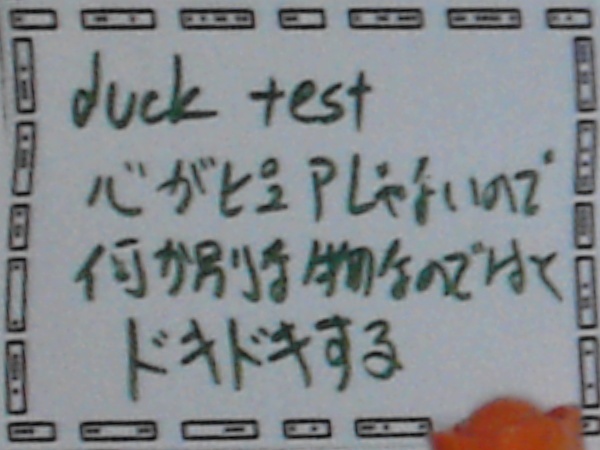 duck test
心がピュアじゃないので
何か別な物なのではと
ドキドキする